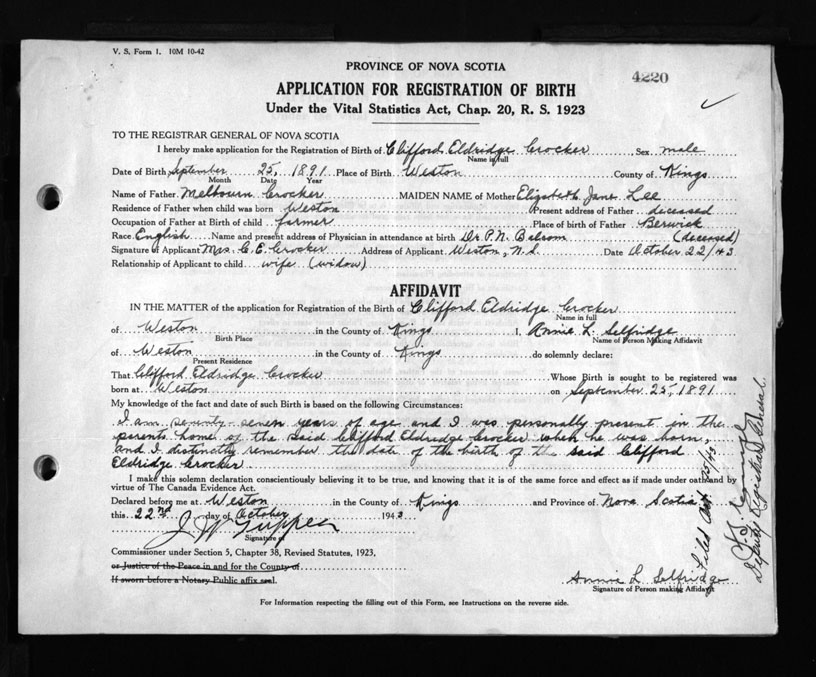 V. S. Form 1. 10M 10-42
PROVINCE OF NOVA SCOTIA
4220
APPLICATION FOR REGISTRATION OF BIRTH
Under the Vital Statistics Act, Chap. 20, R. S. 1923
TO THE REGISTRAR GENERAL OF NOVA SCOTIA
I hereby make application for the Registration of Birth of Clifford Eldridge Crocker Sex male
Name in full
Date of Birth September 25, 1891 Place of Birth Weston County of Kings
Month Date Year
Name of Father Melbourn Crocker MAIDEN NAME of Mother Elizabeth Jane Lee
Residence of Father when child was born Weston Present address of Father deceased
Occupation of Father at Birth of child farmer Place of birth of Father Berwick
Race English Name and present address of Physician in attendance at birth Dr. P. N. Balcom (deceased)
Signature of Applicant Mrs C. E. Crocker Address of Applicant Weston, N.S. Date October 22/43
Relationship of Applicant to child wife (widow)
AFFIDAVIT
IN THE MATTER of the application for Registration of the Birth of Clifford Eldridge Crocker
Name in full
of Weston in the County of Kings I, Annie L. Selfridge
Birth Place Name of Person Making Affidavit
of Weston in the County of Kings do solemnly declare:
Present Residence
That Clifford Eldridge Crocker Whose Birth is sought to be registered was
born at Weston on September 25, 1891
My knowledge of the fact and date of such Birth is based on the following Circumstances:
I am seventy-seven years of age and I was personally present in the
parents home of the said Clifford Eldredge Crocker when he was born,
and I distinctly remember the date of the birth of the said Clifford
Eldridge Crocker
I make this solemn declaration conscientiously believing it to be true, and knowing that it is of the same force and effect as if made under oath and by
virtue of The Canada Evidence Act.
Declared before me at Weston in the County of Kings and Province of Nova Scotia
this 22nd day of October 1943
J W Tupper
Signature
Commissioner under Section 5, Chapter 38, Revised Statutes, 1923,
or Justice of the Peace in and for the County of
If sworn before a Notary Public affix seal.
Annie L Selfridge
Signature of Person making Affidavit
For Information respecting the filling out of this Form, see Instructions on the reverse side.
Filed Oct 25/43
Deputy Registrar General.